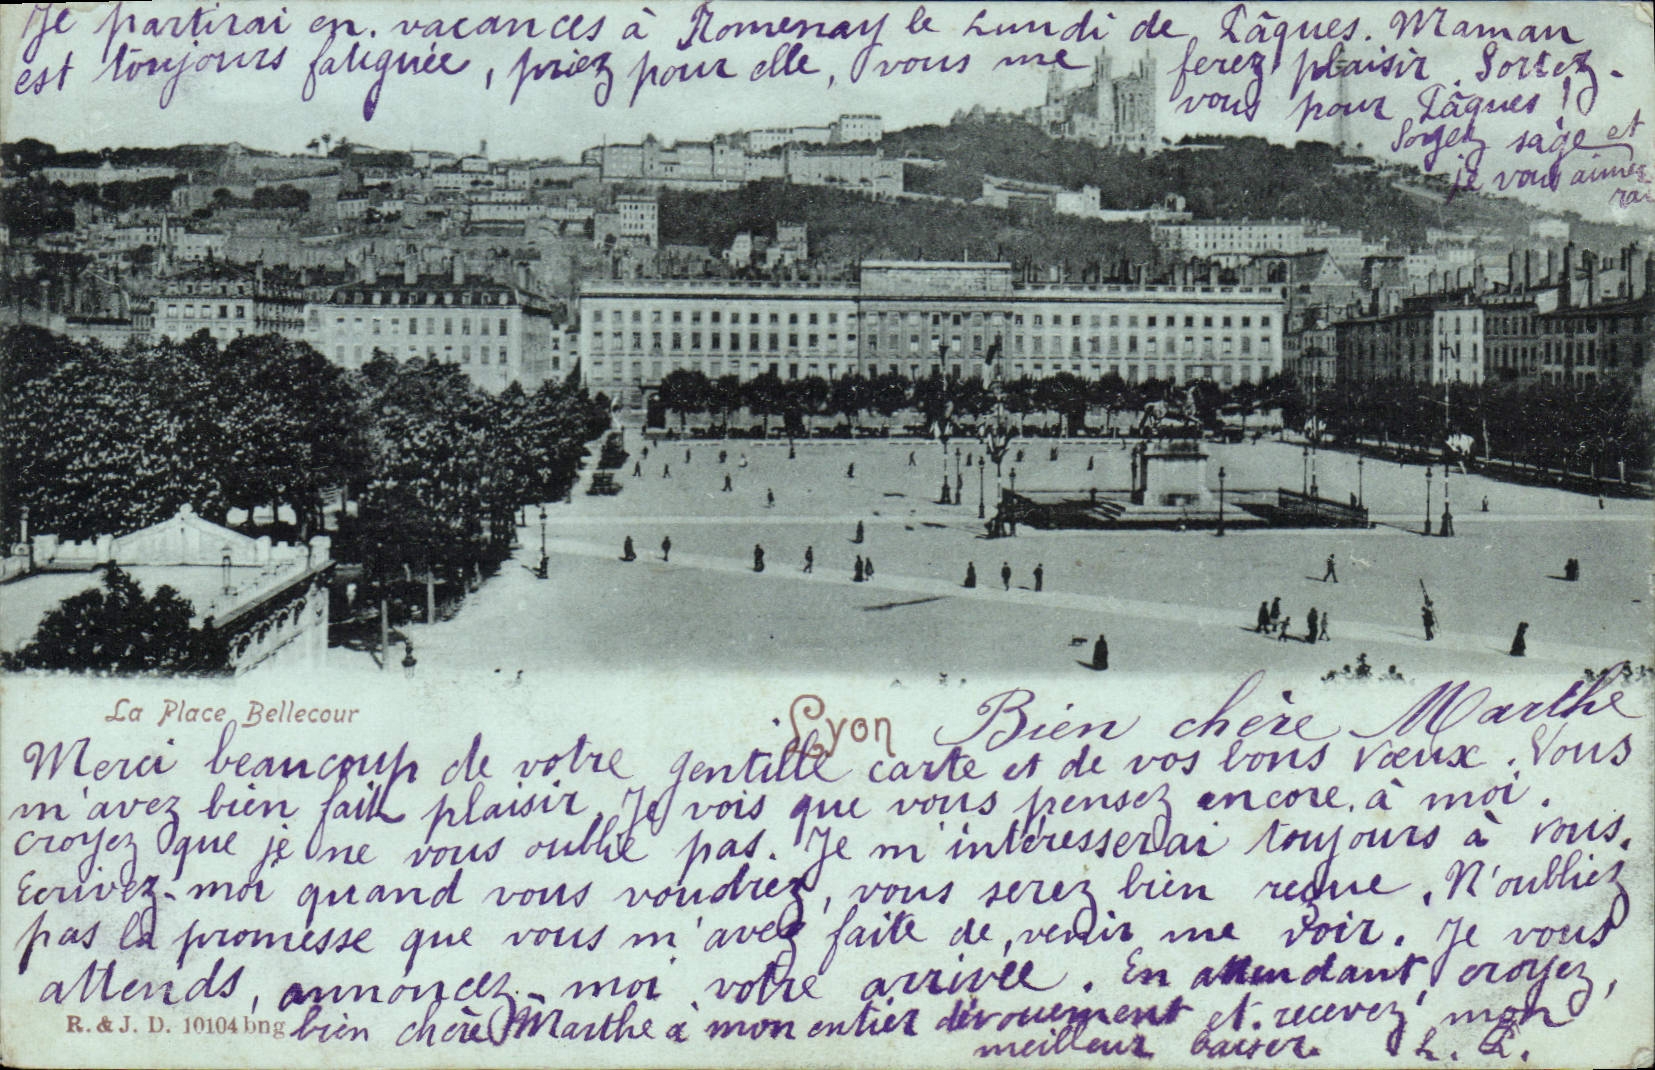 Je partirai en. vacances à Romenay le Lundi de Pâques. Maman
est toujours fatiguée, priez pour elle, vous me ferez plaisir. Sortez-
vous pour Pâques !
Soyez sage et
je vous aime
rai
La Place Bellecour
Lyon
Bien chère Marthe
Merci beaucoup de votre gentille carte et de vos bons vœux. Vous
m'avez bien fait plaisir. Je vois que vous pensez encore à moi.
Croyez que je ne vous oublie pas. Je m'intéresserai toujours à vous.
Ecrivez-moi quand vous voudrez, vous serez bien reçue. N'oubliez
pas la promesse que vous m'avez faite de, venir me voir. Je vous
attends, annoncez-moi votre arrivée. En attendant, croyez,
R. & J. D. 10104 bng
bien chère Marthe à mon entier dévouement et. recevez mon
meilleur baiser. L. L.